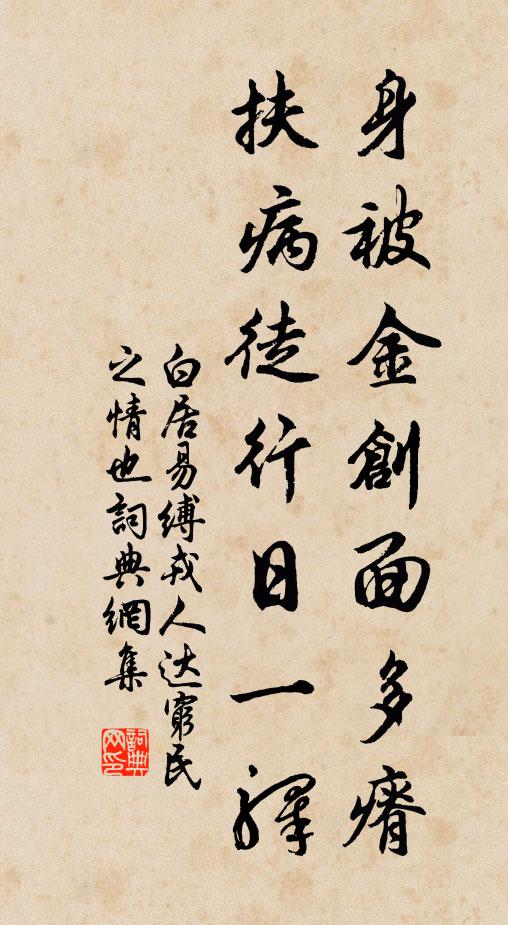 身被金創面多瘠
扶病徒行日一驛
白居易縛戎人达窮民
之情也詞典網集
詞典
网印